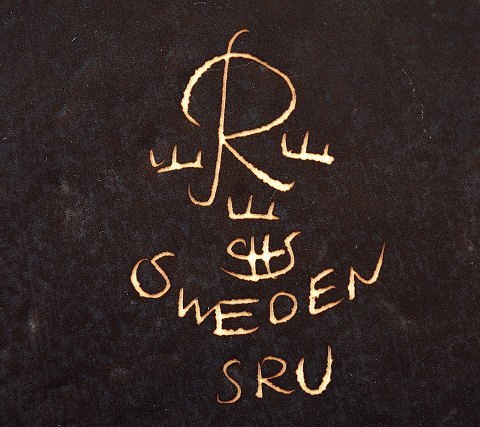 R
E E
E
SWEDEN
SRU